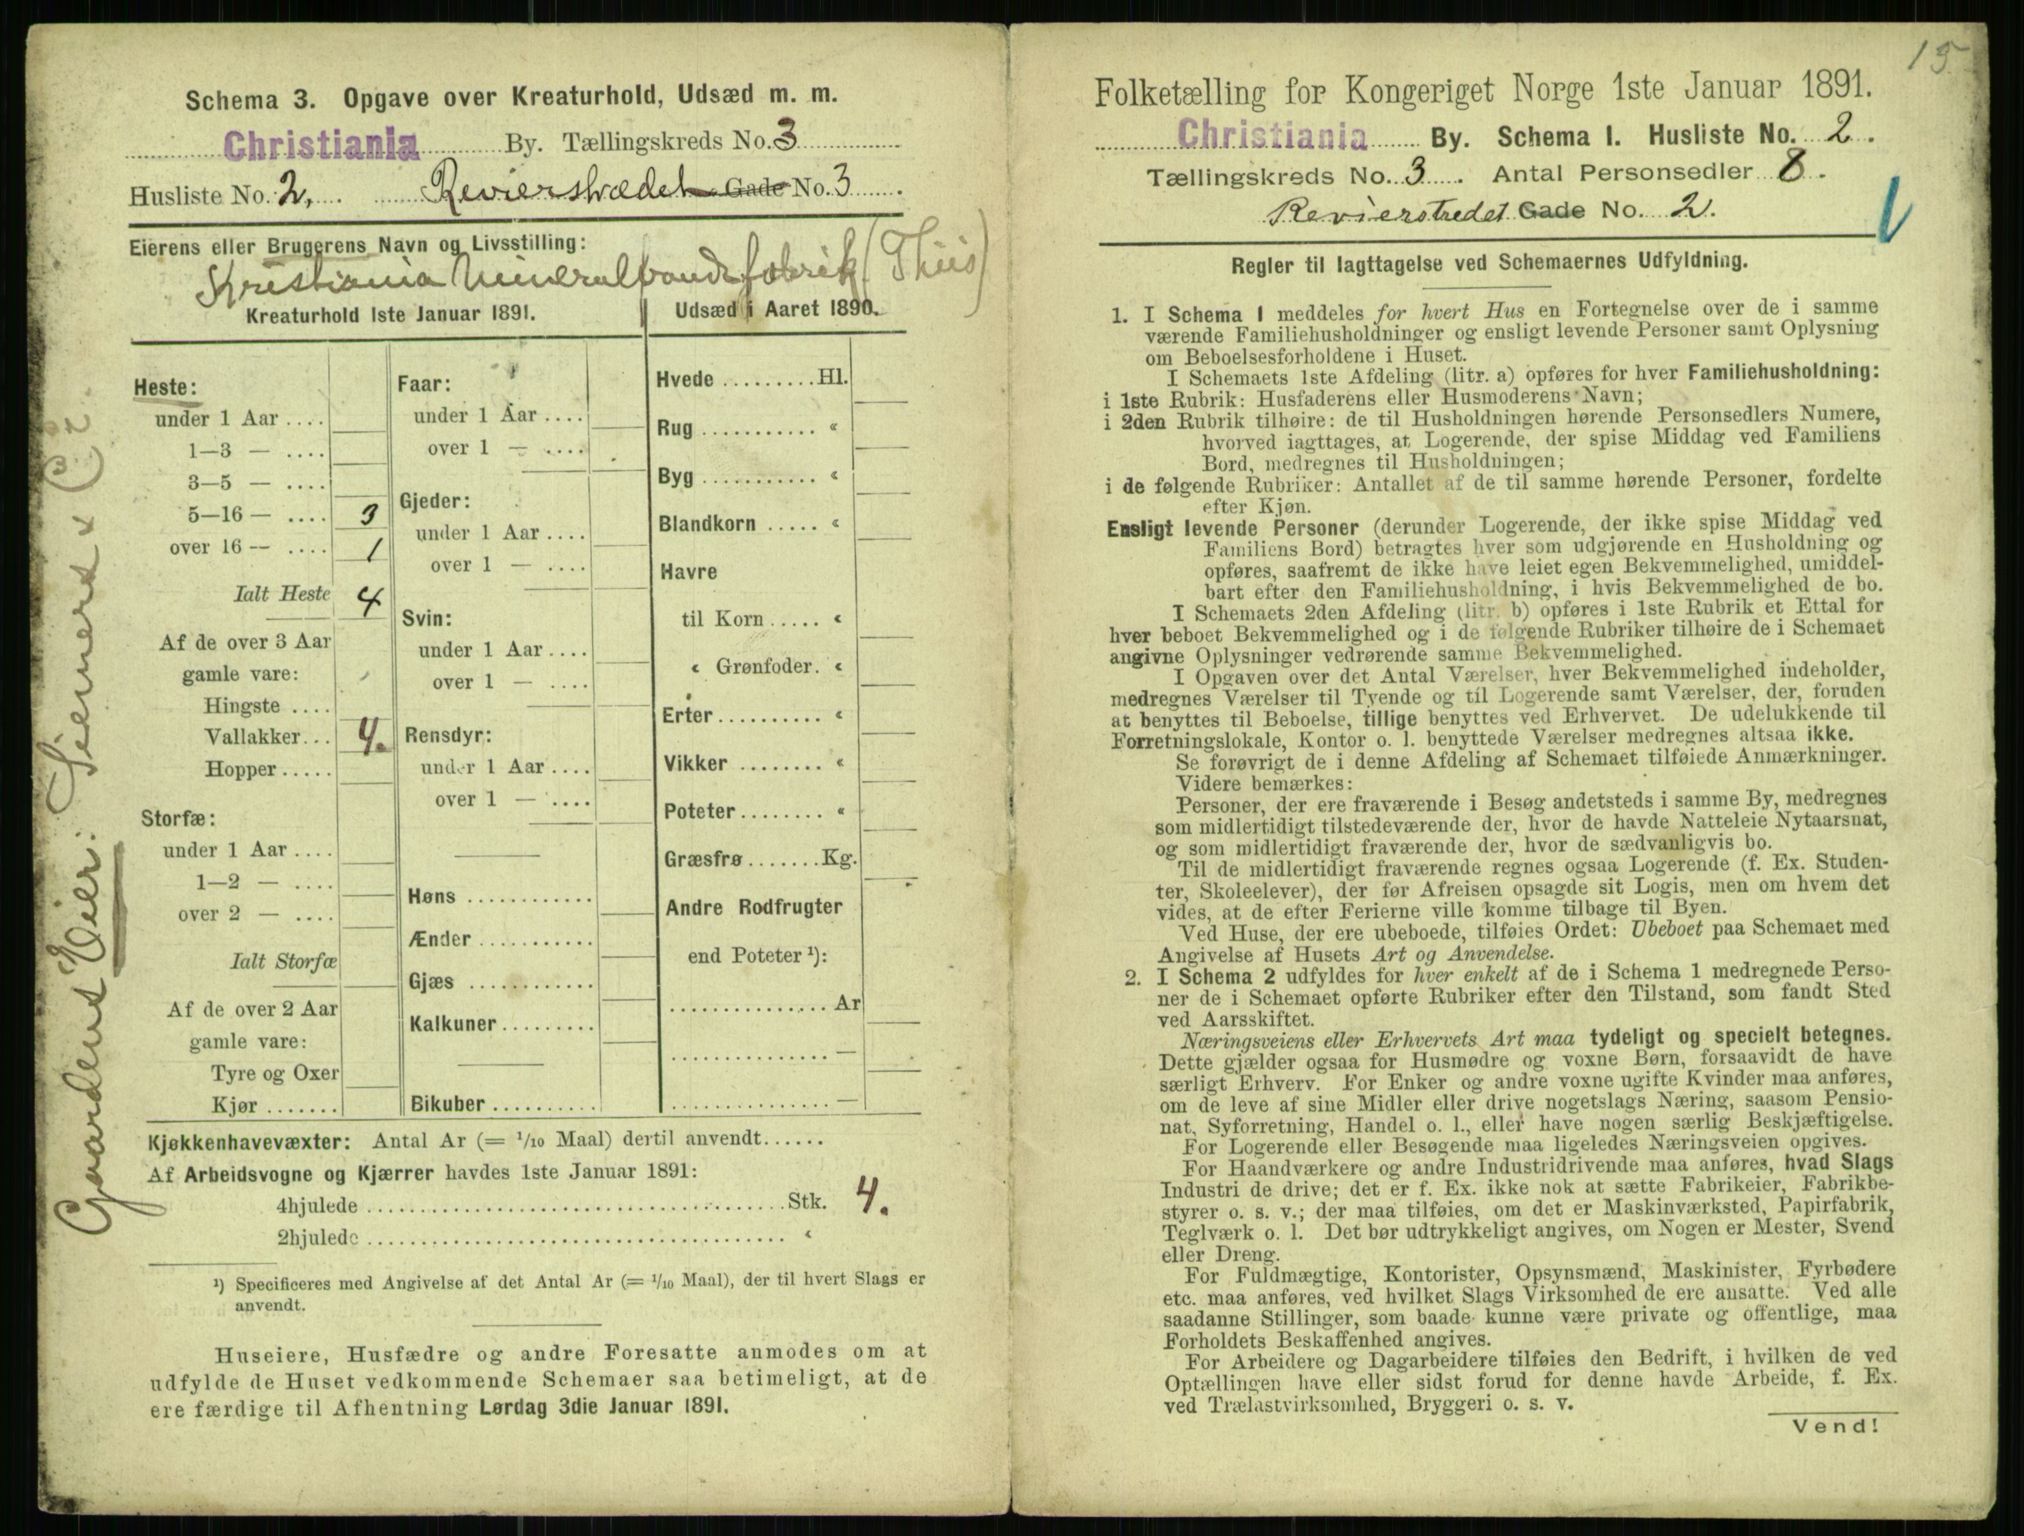 Schema 3. Opgave over Kreaturhold, Udsæd m. m.
Christiania By. Tællingskreds No. 3
Husliste No. 2, Revierstrædet Gade No. 3
Eierens eller Brugerens Navn og Livsstilling:
Kristiania Mineralvandsfabrik (Thiis)
Kreaturhold 1ste Januar 1891.
Heste:
under 1 Aar ....
1—3 — ....
3—5 — ....
5—16 — .... 3
over 16 — .... 1
Ialt Heste 4
Af de over 3 Aar
gamle vare:
Hingste ....
Vallakker... 4.
Hopper.....
Storfæ:
under 1 Aar ....
1—2 — ....
over 2 — ....
Ialt Storfæ
Af de over 2 Aar
gamle vare:
Tyre og Oxer
Kjør .......
Faar:
under 1 Aar ....
over 1 — ....
Gjeder:
under 1 Aar ....
over 1 — ....
Svin:
under 1 Aar ....
over 1 — ....
Rensdyr:
under 1 Aar ....
over 1 — ....
Høns ............
Ænder ...........
Gjæs ............
Kalkuner.........
Bikuber ..........
Udsæd i Aaret 1890.
Hvede .........Hl.
Rug ........... «
Byg ........... «
Blandkorn ..... «
Havre
til Korn ..... «
« Grønfoder. «
Erter.......... «
Vikker ........ «
Poteter........ «
Græsfrø.......Kg.
Andre Rodfrugter
end Poteter ¹):
............... Ar
............... —
............... —
Kjøkkenhavevæxter: Antal Ar (= 1/10 Maal) dertil anvendt......
Af Arbeidsvogne og Kjærrer havdes 1ste Januar 1891:
4hjulede ........................................Stk. 4.
2hjulede ........................................ «
¹) Specificeres med Angivelse af det Antal Ar (= 1/10 Maal), der til hvert Slags er
anvendt.
Huseiere, Husfædre og andre Foresatte anmodes om at
udfylde de Huset vedkommende Schemaer saa betimeligt, at de
ere færdige til Afhentning Lørdag 3die Januar 1891.
Gaardens Eier: Siemers & Co.
15
Folketælling for Kongeriget Norge 1ste Januar 1891.
Christiania By. Schema I. Husliste No. 2.
Tællingskreds No. 3. Antal Personsedler 8.
Revierstredet Gade No. 2.
Regler til Iagttagelse ved Schemaernes Udfyldning.
1. I Schema I meddeles for hvert Hus en Fortegnelse over de i samme
værende Familiehusholdninger og ensligt levende Personer samt Oplysning
om Beboelsesforholdene i Huset.
I Schemaets 1ste Afdeling (litr. a) opføres for hver Familiehusholdning:
i 1ste Rubrik: Husfaderens eller Husmoderens Navn;
i 2den Rubrik tilhøire: de til Husholdningen hørende Personsedlers Numere,
hvorved iagttages, at Logerende, der spise Middag ved Familiens
Bord, medregnes til Husholdningen;
i de følgende Rubriker: Antallet af de til samme hørende Personer, fordelte
efter Kjøn.
Ensligt levende Personer (derunder Logerende, der ikke spise Middag ved
Familiens Bord) betragtes hver som udgjørende en Husholdning og
opføres, saafremt de ikke have leiet egen Bekvemmelighed, umiddel-
bart efter den Familiehusholdning, i hvis Bekvemmelighed de bo.
I Schemaets 2den Afdeling (litr. b) opføres i 1ste Rubrik et Ettal for
hver beboet Bekvemmelighed og i de følgende Rubriker tilhøire de i Schemaet
angivne Oplysninger vedrørende samme Bekvemmelighed.
I Opgaven over det Antal Værelser, hver Bekvemmelighed indeholder,
medregnes Værelser til Tyende og til Logerende samt Værelser, der, foruden
at benyttes til Beboelse, tillige benyttes ved Erhvervet. De udelukkende til
Forretningslokale, Kontor o. l. benyttede Værelser medregnes altsaa ikke.
Se forøvrigt de i denne Afdeling af Schemaet tilføiede Anmærkninger.
Videre bemærkes:
Personer, der ere fraværende i Besøg andetsteds i samme By, medregnes
som midlertidigt tilstedeværende der, hvor de havde Natteleie Nytaarsnat,
og som midlertidigt fraværende der, hvor de sædvanligvis bo.
Til de midlertidigt fraværende regnes ogsaa Logerende (f. Ex. Studen-
ter, Skoleelever), der før Afreisen opsagde sit Logis, men om hvem det
vides, at de efter Ferierne ville komme tilbage til Byen.
Ved Huse, der ere ubeboede, tilføies Ordet: Ubeboet paa Schemaet med
Angivelse af Husets Art og Anvendelse.
2. I Schema 2 udfyldes for hver enkelt af de i Schema 1 medregnede Perso-
ner de i Schemaet opførte Rubriker efter den Tilstand, som fandt Sted
ved Aarsskiftet.
Næringsveiens eller Erhvervets Art maa tydeligt og specielt betegnes.
Dette gjælder ogsaa for Husmødre og voxne Børn, forsaavidt de have
særligt Erhverv. For Enker og andre voxne ugifte Kvinder maa anføres,
om de leve af sine Midler eller drive nogetslags Næring, saasom Pensio-
nat, Syforretning, Handel o. l., eller have nogen særlig Beskjæftigelse.
For Logerende eller Besøgende maa ligeledes Næringsveien opgives.
For Haandværkere og andre Industridrivende maa anføres, hvad Slags
Industri de drive; det er f. Ex. ikke nok at sætte Fabrikeier, Fabrikbe-
styrer o. s. v.; der maa tilføies, om det er Maskinværksted, Papirfabrik,
Teglværk o. l. Det bør udtrykkeligt angives, om Nogen er Mester, Svend
eller Dreng.
For Fuldmægtige, Kontorister, Opsynsmænd, Maskinister, Fyrbødere
etc. maa anføres, ved hvilket Slags Virksomhed de ere ansatte. Ved alle
saadanne Stillinger, som baade kunne være private og offentlige, maa
Forholdets Beskaffenhed angives.
For Arbeidere og Dagarbeidere tilføies den Bedrift, i hvilken de ved
Optællingen have eller sidst forud for denne havde Arbeide, f. Ex.
ved Trælastvirksomhed, Bryggeri o. s. v.
Vend!